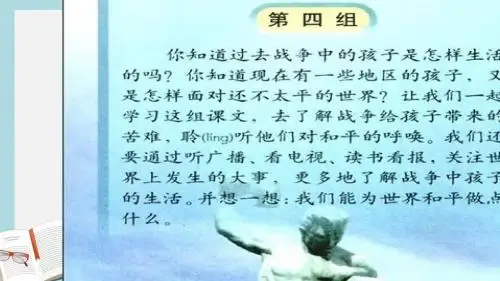 第四组
你知道过去战争中的孩子是怎样生活
的吗？你知道现在有一些地区的孩子，又
是怎样面对还不太平的世界？让我们一起
学习这组课文，去了解战争给孩子带来的
苦难，聆(líng)听他们对和平的呼唤。我们还
要通过听广播、看电视、读书看报，关注世
界上发生的大事，更多地了解战争中孩子
的生活。并想一想：我们能为世界和平做点
什么。